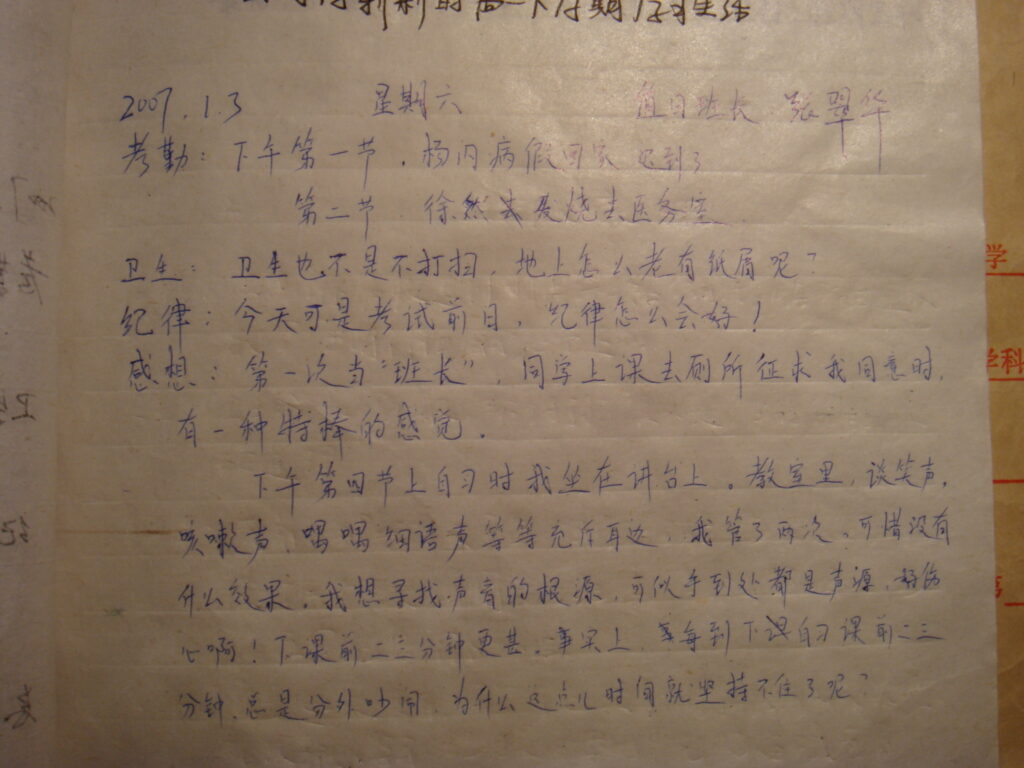 新的高一下学期学习生活
2007.1.3 星期六 值日班长：张翠华
考勤：下午第一节，杨内病假回家 迟到了
第二节 徐然 发烧去医务室
卫生：卫生也不是不打扫，地上怎么老有纸屑呢？
纪律：今天可是考试前日，纪律怎么会好！
感想：第一次当“班长”，同学上课去厕所征求我同意时，
有一种特棒的感觉。
下午第四节上自习时我坐在讲台上。教室里，谈笑声，
咳嗽声，喁喁细语声等等充斥耳边，我管了两次。可惜没有
什么效果。我想寻找声音的根源，可似乎到处都是声源，好伤
心啊！下课前二三分钟更甚。事实上，每到下自习课前二三
分钟，总是分外吵闹，为什么这点儿时间就坚持不住了呢？
学
学科